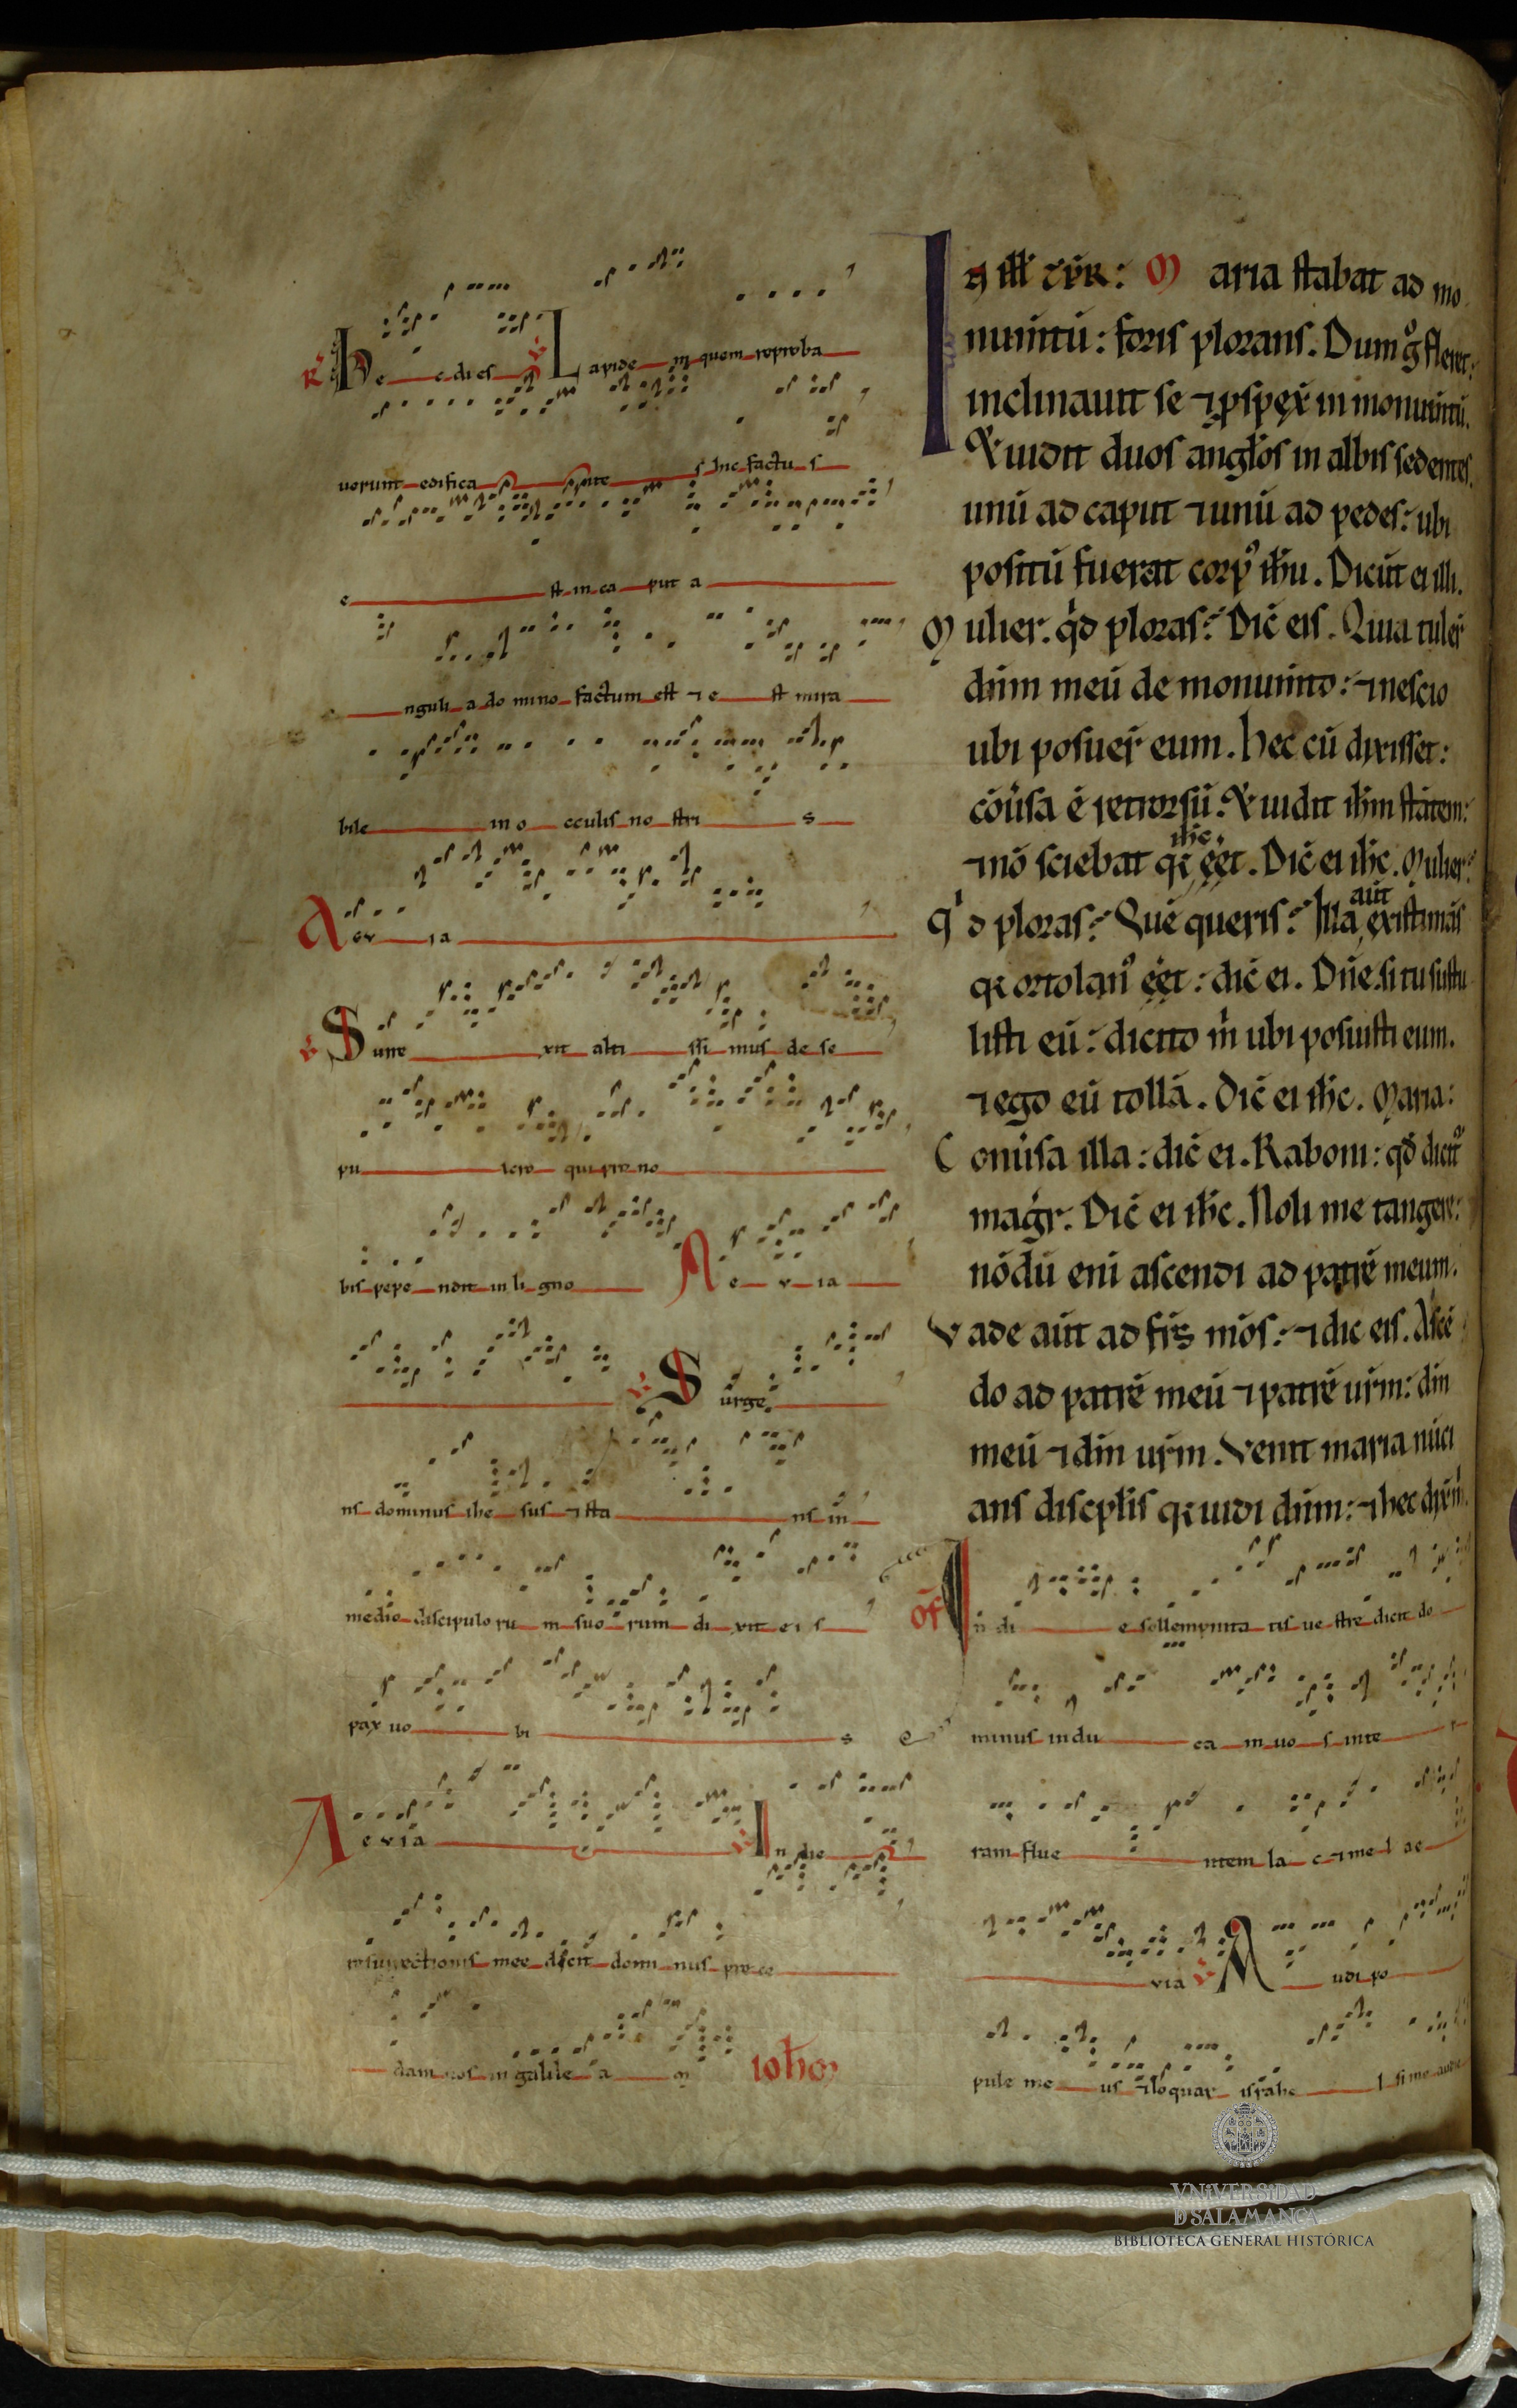 R̃ Hec dies ℣ Lapidem quem reproba
uerunt edifica ntes hic factus
e st in ca put a
nguli a domino factum est ⁊ e st mira
bile in o cculis no stri s
A evia
℣ Surre xit alti ssi mus de se
pu lcro qui pro no
bis pepe ndit in li gno A e v ia
℣ Surge
ns dominus ihe sus ⁊ sta ns in
medio discipulo ru m suo rum di xit ei s
pax uo bi s
A evia ℣ In die
resurrectionis mee dicit domi nus pre ce
dam uos in galile a m ioħem
In ill̄ t̄pr̄: Maria stabat ad mo
num̄tū: foris plorans. Dum g̊ fleret:
inclinauit se ⁊ p̱spex̄ in monum̄tū.
⁊ uidit duos angl̄os in albis sedentes.
unū ad caput ⁊ unū ad pedes: ubi
positū fuerat corp᾿ ih̄u. Dicūt ei illi.
Mulier. q̇d ploras? Dic̄ eis. Quia tuler̄
dn̄m meū de monum̄to: ⁊ nescio
ubi posuer̄ eum. Hec cū dixisset:
cōūsa ē retrorsū: ⁊ uidit ih̄m stātem:
⁊ nō sciebat q̄ ih̄c ēet. Dic̄ ei ih̄c. Mulier:
q̇d ploras? Quē queris? Illa aūt existimās
q̄ ortolan᾿ ēet: dic̄ ei. Dn̄e. si tu sustu
listi eū: dicito m̄ ubi posuisti eum.
⁊ ego eū tollā. Dic̄ ei ih̄c. Maria:
Conūsa illa: dic̄ ei. Raboni: qd̄ dicit᾿
maḡr. Dic̄ ei ih̄c. Noli me tangere:
nōdū enī ascendi ad patrē meum.
Vade aūt ad fr̄s mōs: ⁊ dic eis. Ascē
do ad patrē meū ⁊ patrē ur̄m: dm̄
meū ⁊ dm̄ ur̄m. Venit maria nūci
ans discipl̄is q̄ uidi dn̄m: ⁊ hec dix̄ m̄.
Of̄ In di e sollempnita tis ue stre dicit do
minus indu ca m uo s in te r
ram flue ntem la c ⁊ me l ae
via ℣ A udi po
pule me us ⁊ loquar israhe l si me audie
VNiVERSiDAD
D SALAMANCA
BIBLIOTECA GENERAL HISTÓRICA